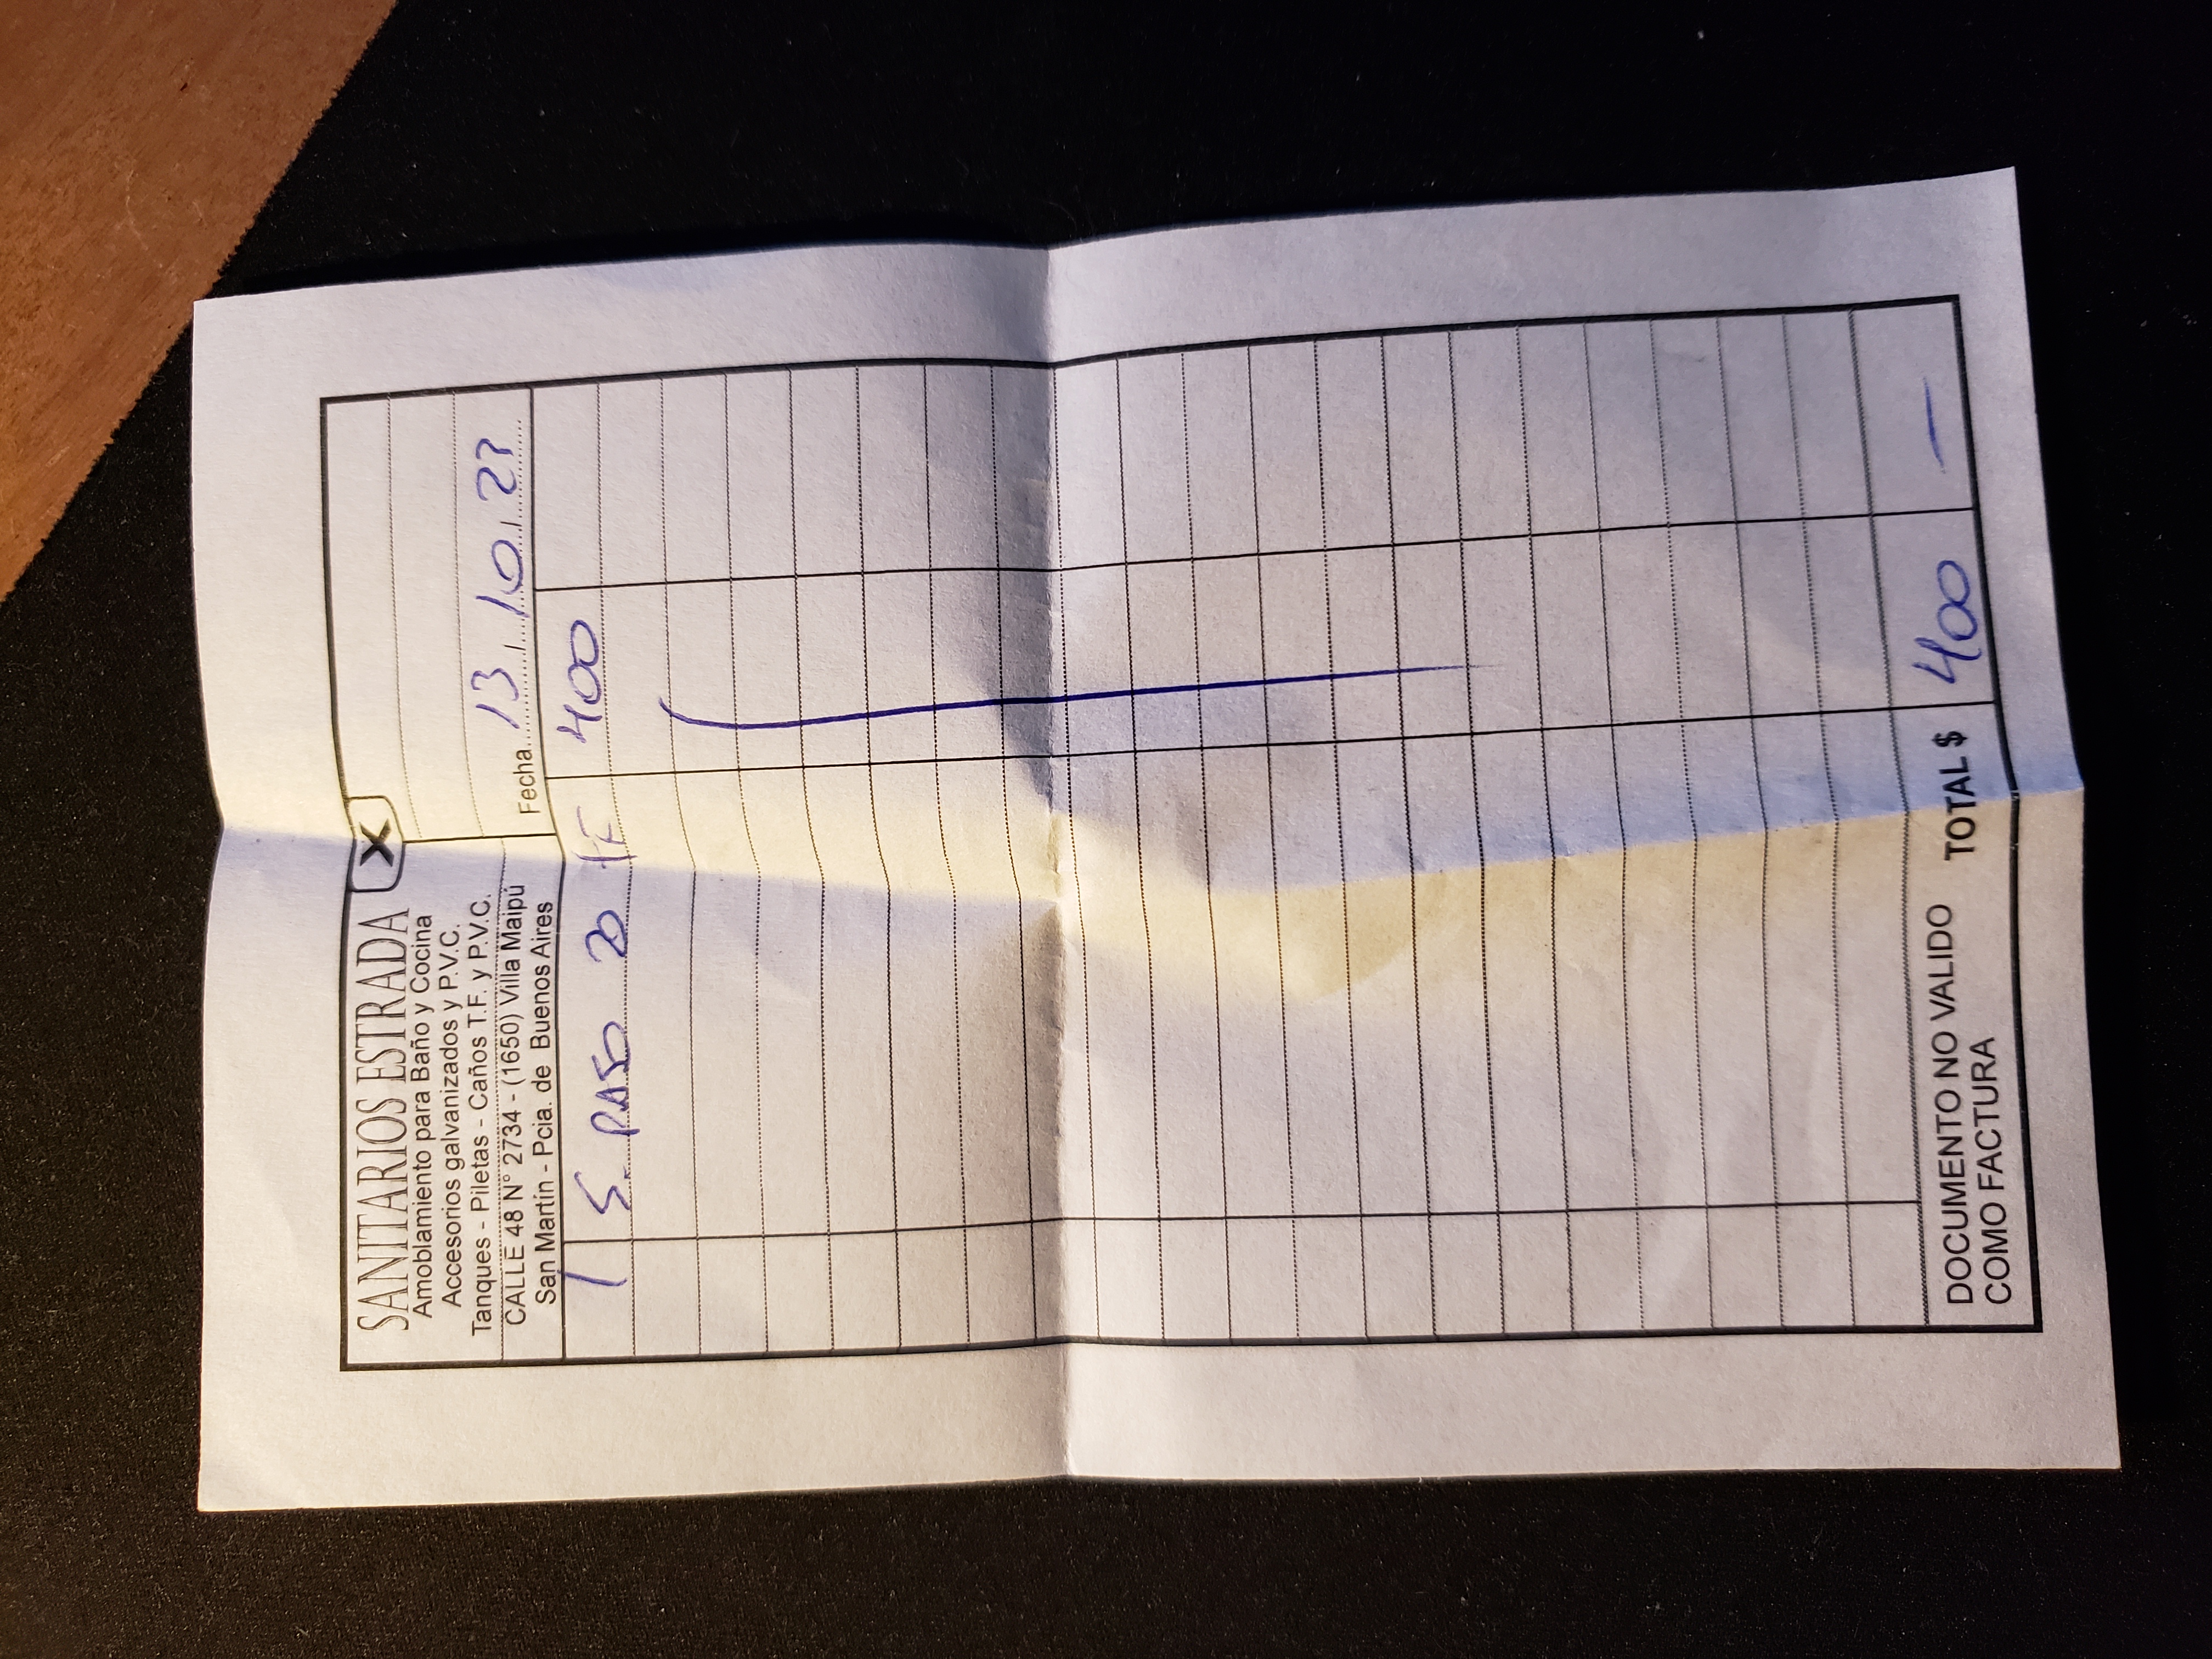 SANITARIOS ESTRADA
Amoblamiento para Baño y Cocina
Accesorios galvanizados y P.V.C.
Tanques - Piletas - Caños T.F. y P.V.C.
CALLE 48 N° 2734 - (1650) Villa Maipú
San Martín - Pcia. de Buenos Aires
X
Fecha 13 / 10 / 23
1 S. PASO 20 TF 400
DOCUMENTO NO VALIDO
COMO FACTURA
TOTAL $ 400 —